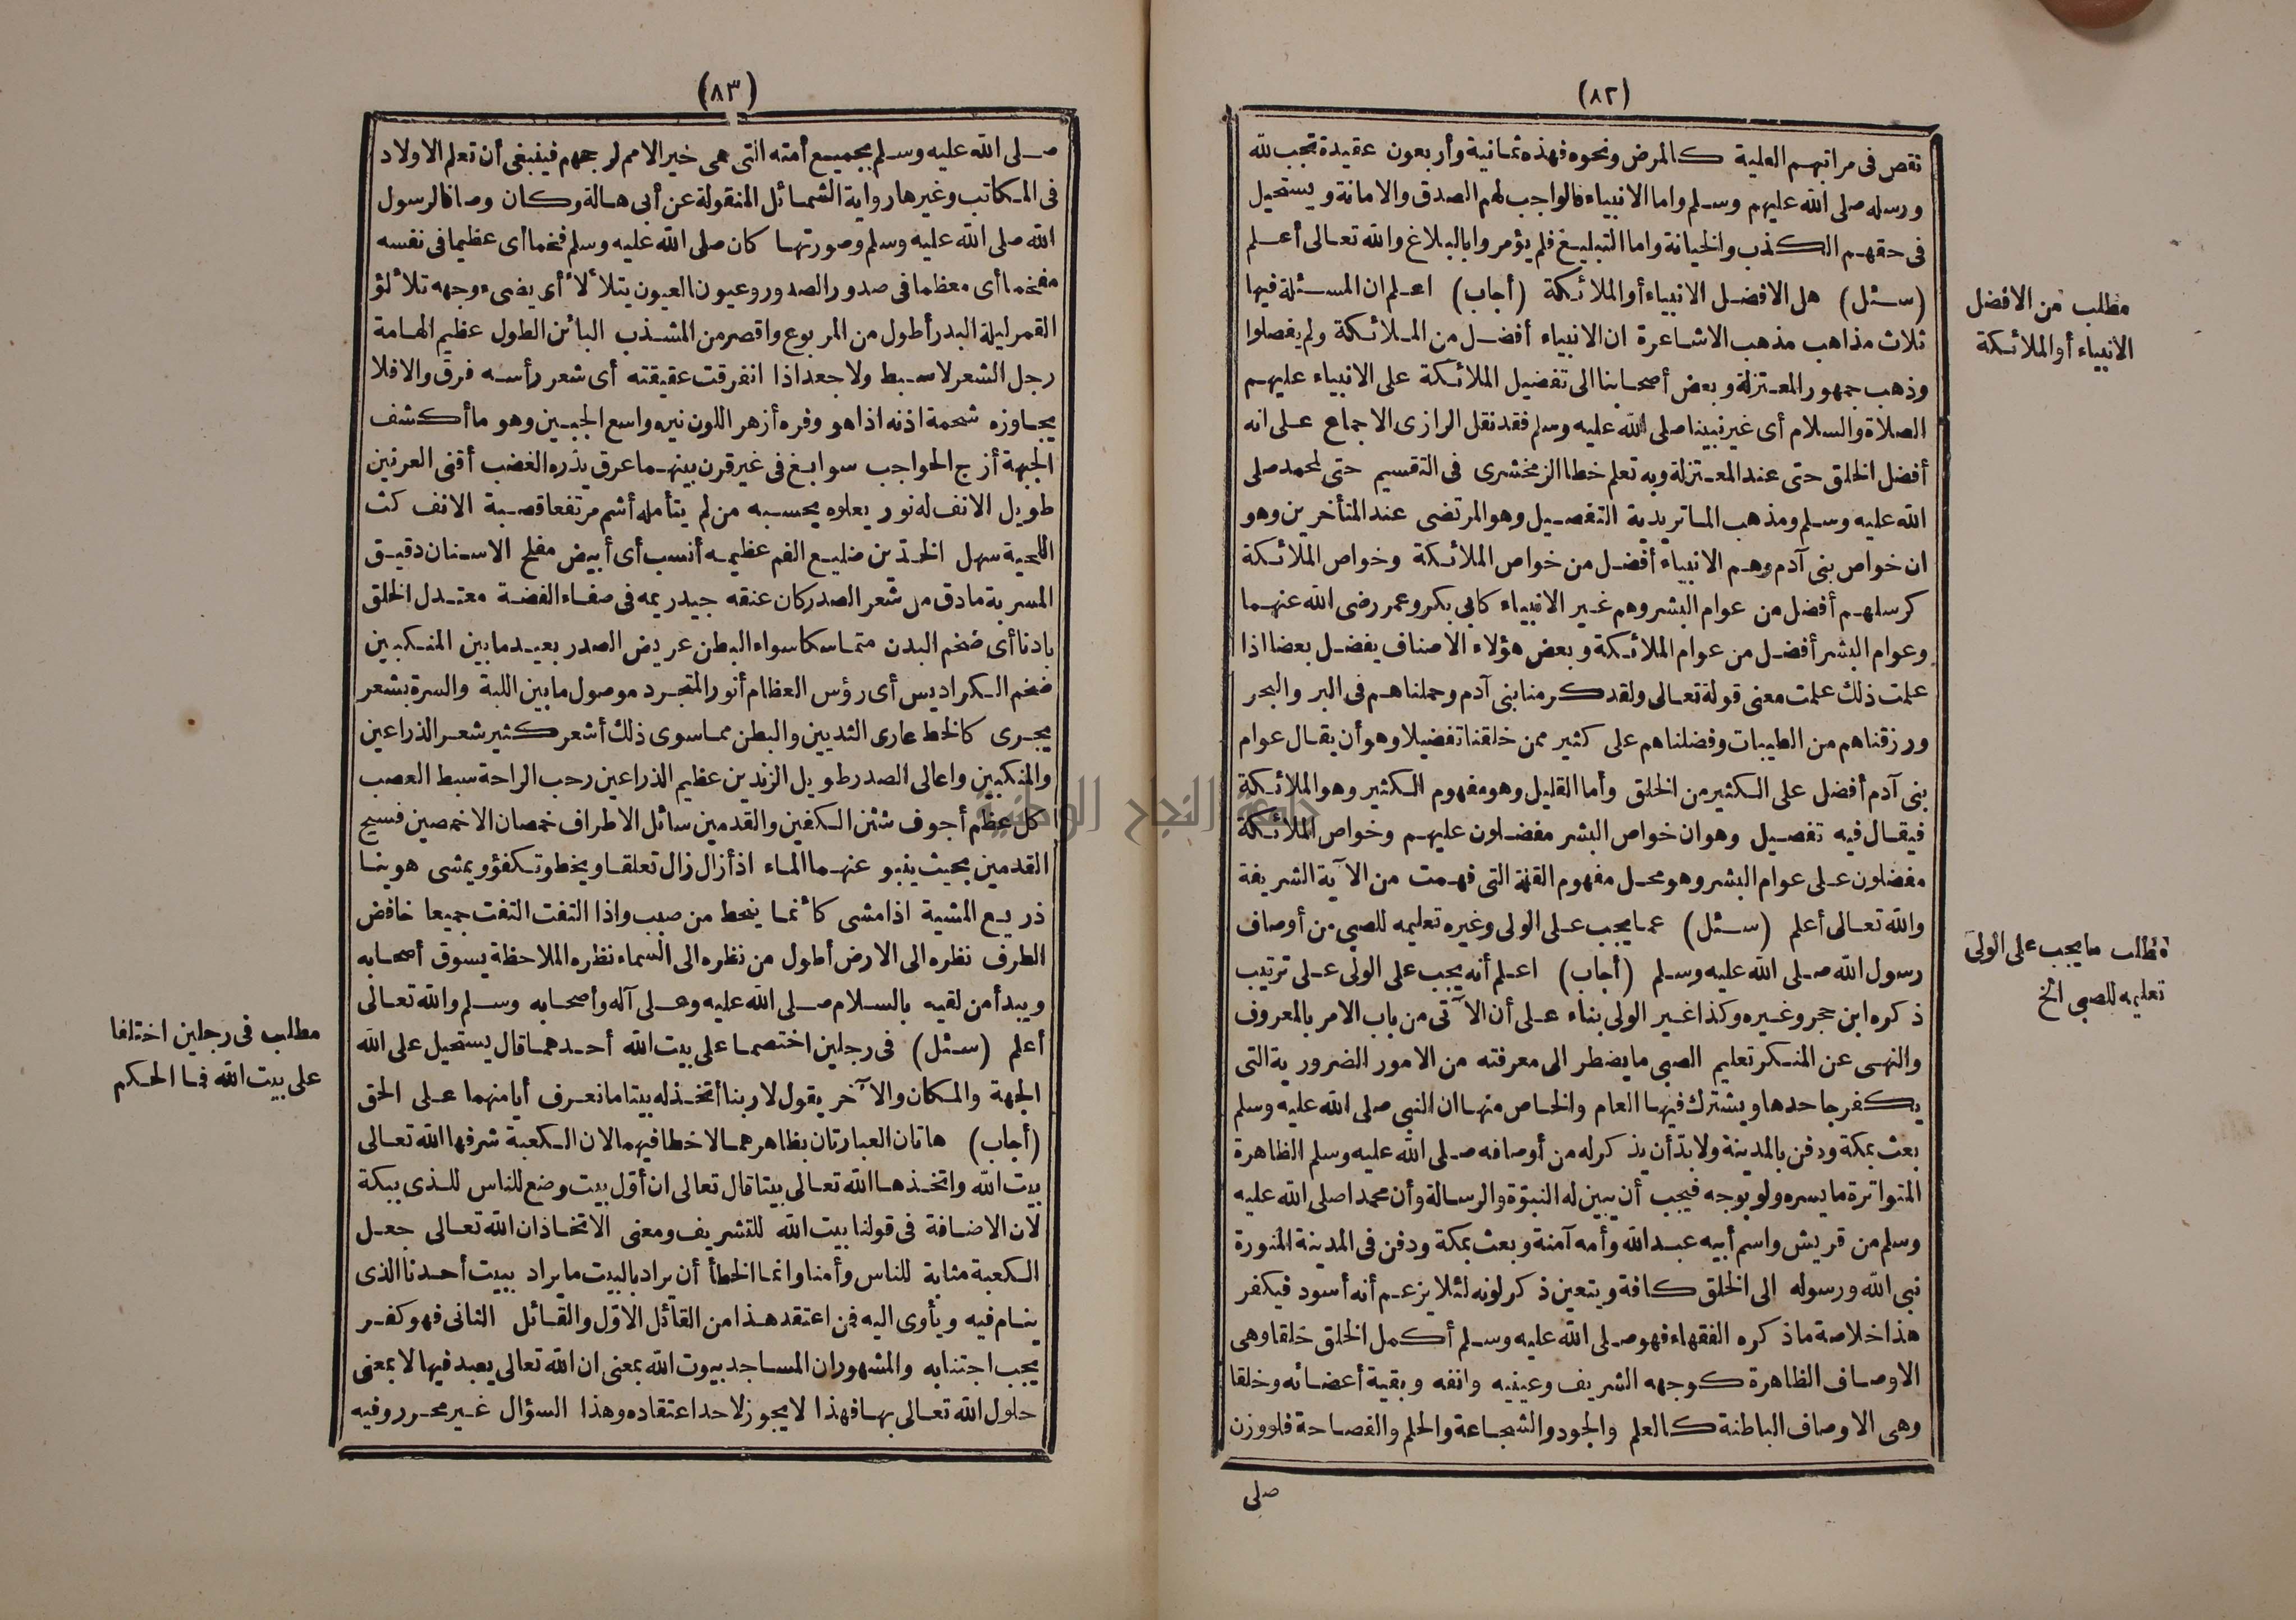 (٨٢)
نقص فى مراتبهم العلية كالمرض ونحوه فهذه ثمانية وأربعون عقيدة تجب لله
ورسله صلى الله عليهم وسلم واما الانبياء فالواجب لهم الصدق والامانة ويستحيل
فى حقهم الكذب والخيانة واما التبليغ فلم يؤمروا بالبلاغ والله تعالى أعلم
(سئل) هل الافضل الانبياء أو الملائكة (أجاب) اعلم ان المسئلة فيها
ثلاث مذاهب مذهب الاشاعرة ان الانبياء أفضل من الملائكة ولم يفصلوا
وذهب جمهور المعتزلة وبعض أصحابنا الى تفضيل الملائكة على الانبياء عليهم
الصلاة والسلام أى غير نبينا صلى الله عليه وسلم فقد نقل الرازى الاجماع على انه
أفضل الخلق حتى عند المعتزلة وبه تعلم خطا الزمخشرى فى التقسيم حتى لمحمد صلى
الله عليه وسلم ومذهب الماتريدية التفصيل وهو المرتضى عند المتأخرين وهو
ان خواص بنى آدم وهم الانبياء أفضل من خواص الملائكة وخواص الملائكة
كرسلهم أفضل من عوام البشر وهم غير الانبياء كابى بكر وعمر رضى الله عنهما
وعوام البشر أفضل من عوام الملائكة وبعض هؤلاء الاصناف يفضل بعضا اذا
علمت ذلك علمت معنى قولة تعالى ولقد كرمنا بنى آدم وحملناهم فى البر والبحر
ورزقناهم من الطيبات وفضلناهم على كثير ممن خلقنا تفضيلا وهو أن يقال عوام
بنى آدم أفضل على الكثير من الخلق وأما القليل وهو مفهوم الكثير وهو الملائكة
فيقال فيه تفصيل وهو ان خواص البشر مفضلون عليهم وخواص الملائكة
مفضلون على عوام البشر وهو محل مفهوم القلة التى فهمت من الآية الشريفة
والله تعالى أعلم (سئل) عما يجب على الولى وغيره تعليمه للصبى من أوصاف
رسول الله صلى الله عليه وسلم (أجاب) اعلم أنه يجب على الولى على ترتيب
ذكره ابن حجر وغيره وكذا غير الولى بناء على أن الآتى من باب الامر بالمعروف
والنهى عن المنكر تعليم الصبى ما يضطر الى معرفته من الامور الضرورية التى
يكفر جاحدها ويشترك فيها العام والخاص منها ان النبى صلى الله عليه وسلم
بعث بمكة ودفن بالمدينة ولا بدّ أن يذكر له من أوصافه صلى الله عليه وسلم الظاهرة
المتواترة ما يسره ولو بوجه فيجب أن يبين له النبوّة والرسالة وأن محمدا صلى الله عليه
وسلم من قريش واسم أبيه عبد الله وأمه آمنة وبعث بمكة ودفن فى المدينة المنورة
نبى الله ورسوله الى الخلق كافة ويتعين ذكر لونه لئلا يزعم أنه أسود فيكفر
هذا خلاصة ما ذكره الفقهاء فهو صلى الله عليه وسلم أكمل الخلق خلقا وهى
الاوصاف الظاهرة كوجهه الشريف وعينيه وانفه وبقية أعضائه وخلقا
وهى الاوصاف الباطنة كالعلم والجود والشجاعة والحلم والفصاحة فلو وزن
صلى
مطلب من الافضل
الانبياء أو الملائكة
مطلب ما يجب على الولى
تعليمه للصبى الخ
(٨٣)
صلى الله عليه وسلم بجميع أمته التى هى خير الامم لرجحهم فينبغى أن تعلم الاولاد
فى المكاتب وغيرها رواية الشمائل المنقولة عن أبى هالة وكان وصافا لرسول
الله صلى الله عليه وسلم وصورتها كان صلى الله عليه وسلم فخما أى عظيما فى نفسه
مفخما أى معظما فى صدور الصدور وعيون العيون يتلألأ أى يضىء وجهه تلألؤ
القمر ليلة البدر أطول من المربوع واقصر من المشذب البائن الطول عظيم الهامة
رجل الشعر لا سبط ولا جعد اذا انفرقت عقيقته أى شعر رأسه فرق والا فلا
يجاوزه شحمة اذنه اذا هو وفره أزهر اللون نيره واسع الجبين وهو ما أكشف
الجبهة أزج الحواجب سوابغ فى غير قرن بينهما عرق يذره الغضب أقنى العرنين
طويل الانف له نور يعلوه يحسبه من لم يتأمله أشم مرتفعا قصبة الانف كث
اللحية سهل الخدّين ضليع الفم عظيمه أنسب أى أبيض مفلج الاسنان دقيق
المسربة ما دق من شعر الصدر كان عنقه جيد ريمه فى صفاء الفضة معتدل الخلق
بادنا أى ضخم البدن متماسكا سواء البطن عريض الصدر بعيد ما بين المنكبين
ضخم الكراديس أى رؤس العظام أنور المتجرد موصول ما بين اللبة والسرة بشعر
يجرى كالخط عارى الثديين والبطن مما سوى ذلك أشعر كثير شعر الذراعين
والمنكبين واعالى الصدر طويل الزندين عظيم الذراعين رحب الراحة سبط العصب
كل عظم أجوف شثن الكفين والقدمين سائل الاطراف خمصان الاخمصين فسيح
القدمين بحيث ينبو عنهما الماء اذ أزال زال تعلقا ويخطو تكفؤ ويمشى هوينا
ذريع المشية اذا مشى كأنما ينحط من صبب واذا التفت التفت جميعا خافض
الطرف نظره الى الارض أطول من نظره الى السماء نظره الملاحظة يسوق أصحابه
ويبدأ من لقيه بالسلام صلى الله عليه وعلى آله وأصحابه وسلم والله تعالى
أعلم (سئل) فى رجلين اختصما على بيت الله أحدهما قال يستحيل على الله
الجهة والمكان والآخر يقول لا ربنا أتخذ له بيتا ما نعرف أيا منهما على الحق
(أجاب) هاتان العبارتان بظاهرهما لا خطا فيهما لان الكعبة شرفها الله تعالى
بيت الله واتخذها الله تعالى بيتا قال تعالى ان أوّل بيت وضع للناس للذى ببكة
لان الاضافة فى قولنا بيت الله للتشريف ومعنى الاتخاذ ان الله تعالى جعل
الكعبة مثابة للناس وأمنا وانما الخطأ أن يراد بالبيت ما يراد ببيت أحدنا الذى
ينام فيه ويأوى اليه فمن اعتقد هذا من القائل الاوّل والقائل الثانى فهو كفر
يجب اجتنابه والمشهور ان المساجد بيوت الله بمعنى ان الله تعالى يعبد فيها لا بمعنى
حلول الله تعالى بها فهذا لا يجوز لاحد اعتقاده وهذا السؤال غير محرر وفيه
مطلب فى رجلين اختلفا
على بيت الله فما الحكم
جامعة النجاح الوطنية